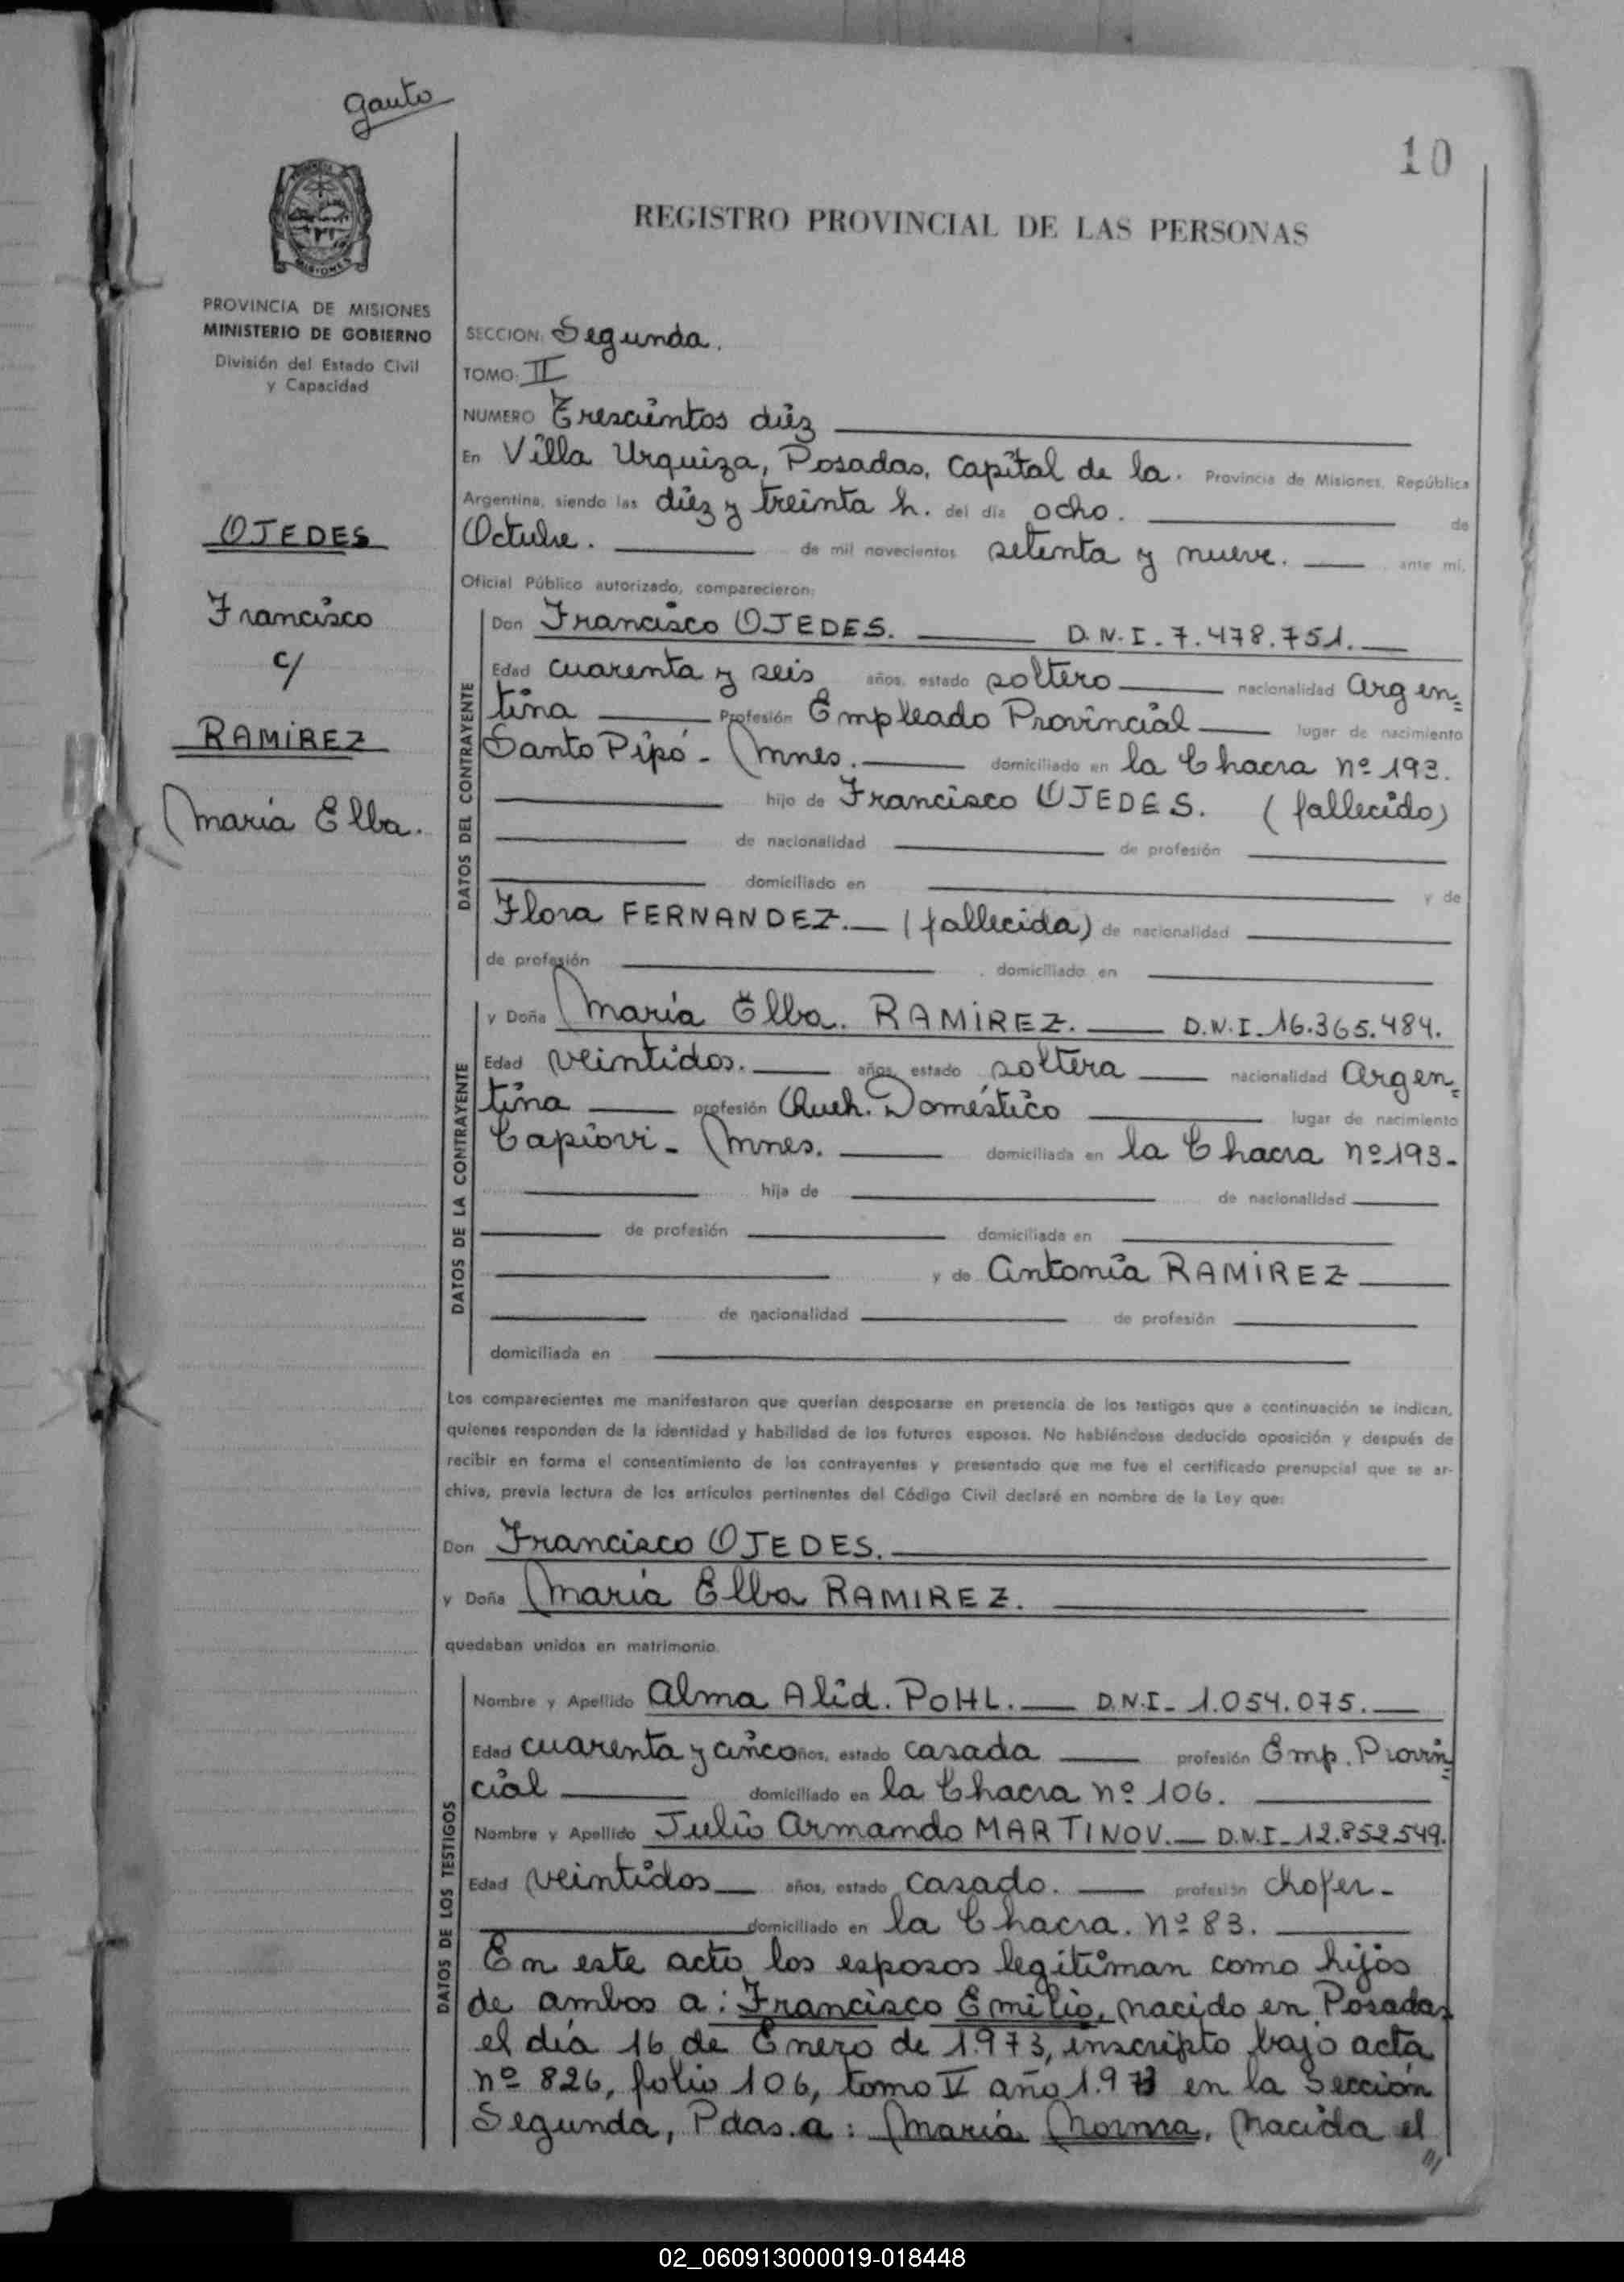 Gauto
10
REGISTRO PROVINCIAL DE LAS PERSONAS
MISIONES
PROVINCIA DE MISIONES
MINISTERIO DE GOBIERNO
División del Estado Civil
y Capacidad
OJEDES
Francisco
c/
RAMIREZ
María Elba.
SECCION: Segunda.
TOMO: II
NUMERO Trescientos diéz
En Villa Urquiza, Posadas, Capital de la. Provincia de Misiones, República
Argentina, siendo las diéz y treinta h. del día ocho. de
Octubre. de mil novecientos setenta y nueve. ante mí,
Oficial Público autorizado, comparecieron:
DATOS DEL CONTRAYENTE
Don Francisco OJEDES. D.N.I. 7.478.751.
Edad cuarenta y seis años, estado soltero nacionalidad Argen=
tina Profesión Empleado Provincial lugar de nacimiento
Santo Pipó - Mnes. domiciliado en la Chacra nº 193.
hijo de Francisco OJEDES. (fallecido)
de nacionalidad de profesión
domiciliado en y de
Flora FERNANDEZ. (fallecida) de nacionalidad
de profesión domiciliada en
DATOS DE LA CONTRAYENTE
y Doña María Elba. RAMIREZ. D.N.I. 16.365.484.
Edad veintidos. años, estado soltera nacionalidad Argen=
tina profesión Queh. Doméstico lugar de nacimiento
Capiovi - Mnes. domiciliada en la Chacra nº 193-
hija de de nacionalidad
de profesión domiciliada en
y de Antonia RAMIREZ
de nacionalidad de profesión
domiciliada en
Los comparecientes me manifestaron que querían desposarse en presencia de los testigos que a continuación se indican,
quienes responden de la identidad y habilidad de los futuros esposos. No habiéndose deducido oposición y después de
recibir en forma el consentimiento de los contrayentes y presentado que me fue el certificado prenupcial que se ar-
chiva, previa lectura de los artículos pertinentes del Código Civil declaré en nombre de la Ley que:
Don Francisco OJEDES.
y Doña María Elba RAMIREZ.
quedaban unidos en matrimonio.
DATOS DE LOS TESTIGOS
Nombre y Apellido Alma Alid. POHL. D.N.I- 1.054.075.
Edad cuarenta y cinco años, estado casada profesión Emp. Provin=
cial domiciliado en la Chacra nº 106.
Nombre y Apellido Julio Armando MARTINOV. D.N.I- 12.852.549.
Edad veintidos años, estado casado. profesión chofer-
domiciliado en la Chacra. nº 83.
En este acto los esposos legitiman como hijos
de ambos a: Francisco Emilio, nacido en Posadas
el día 16 de Enero de 1.973, inscripto bajo acta
nº 826, folio 106, tomo V año 1.973 en la Sección
Segunda, Pdas. a: María Norma, Nacida el
///
02_060913000019-018448